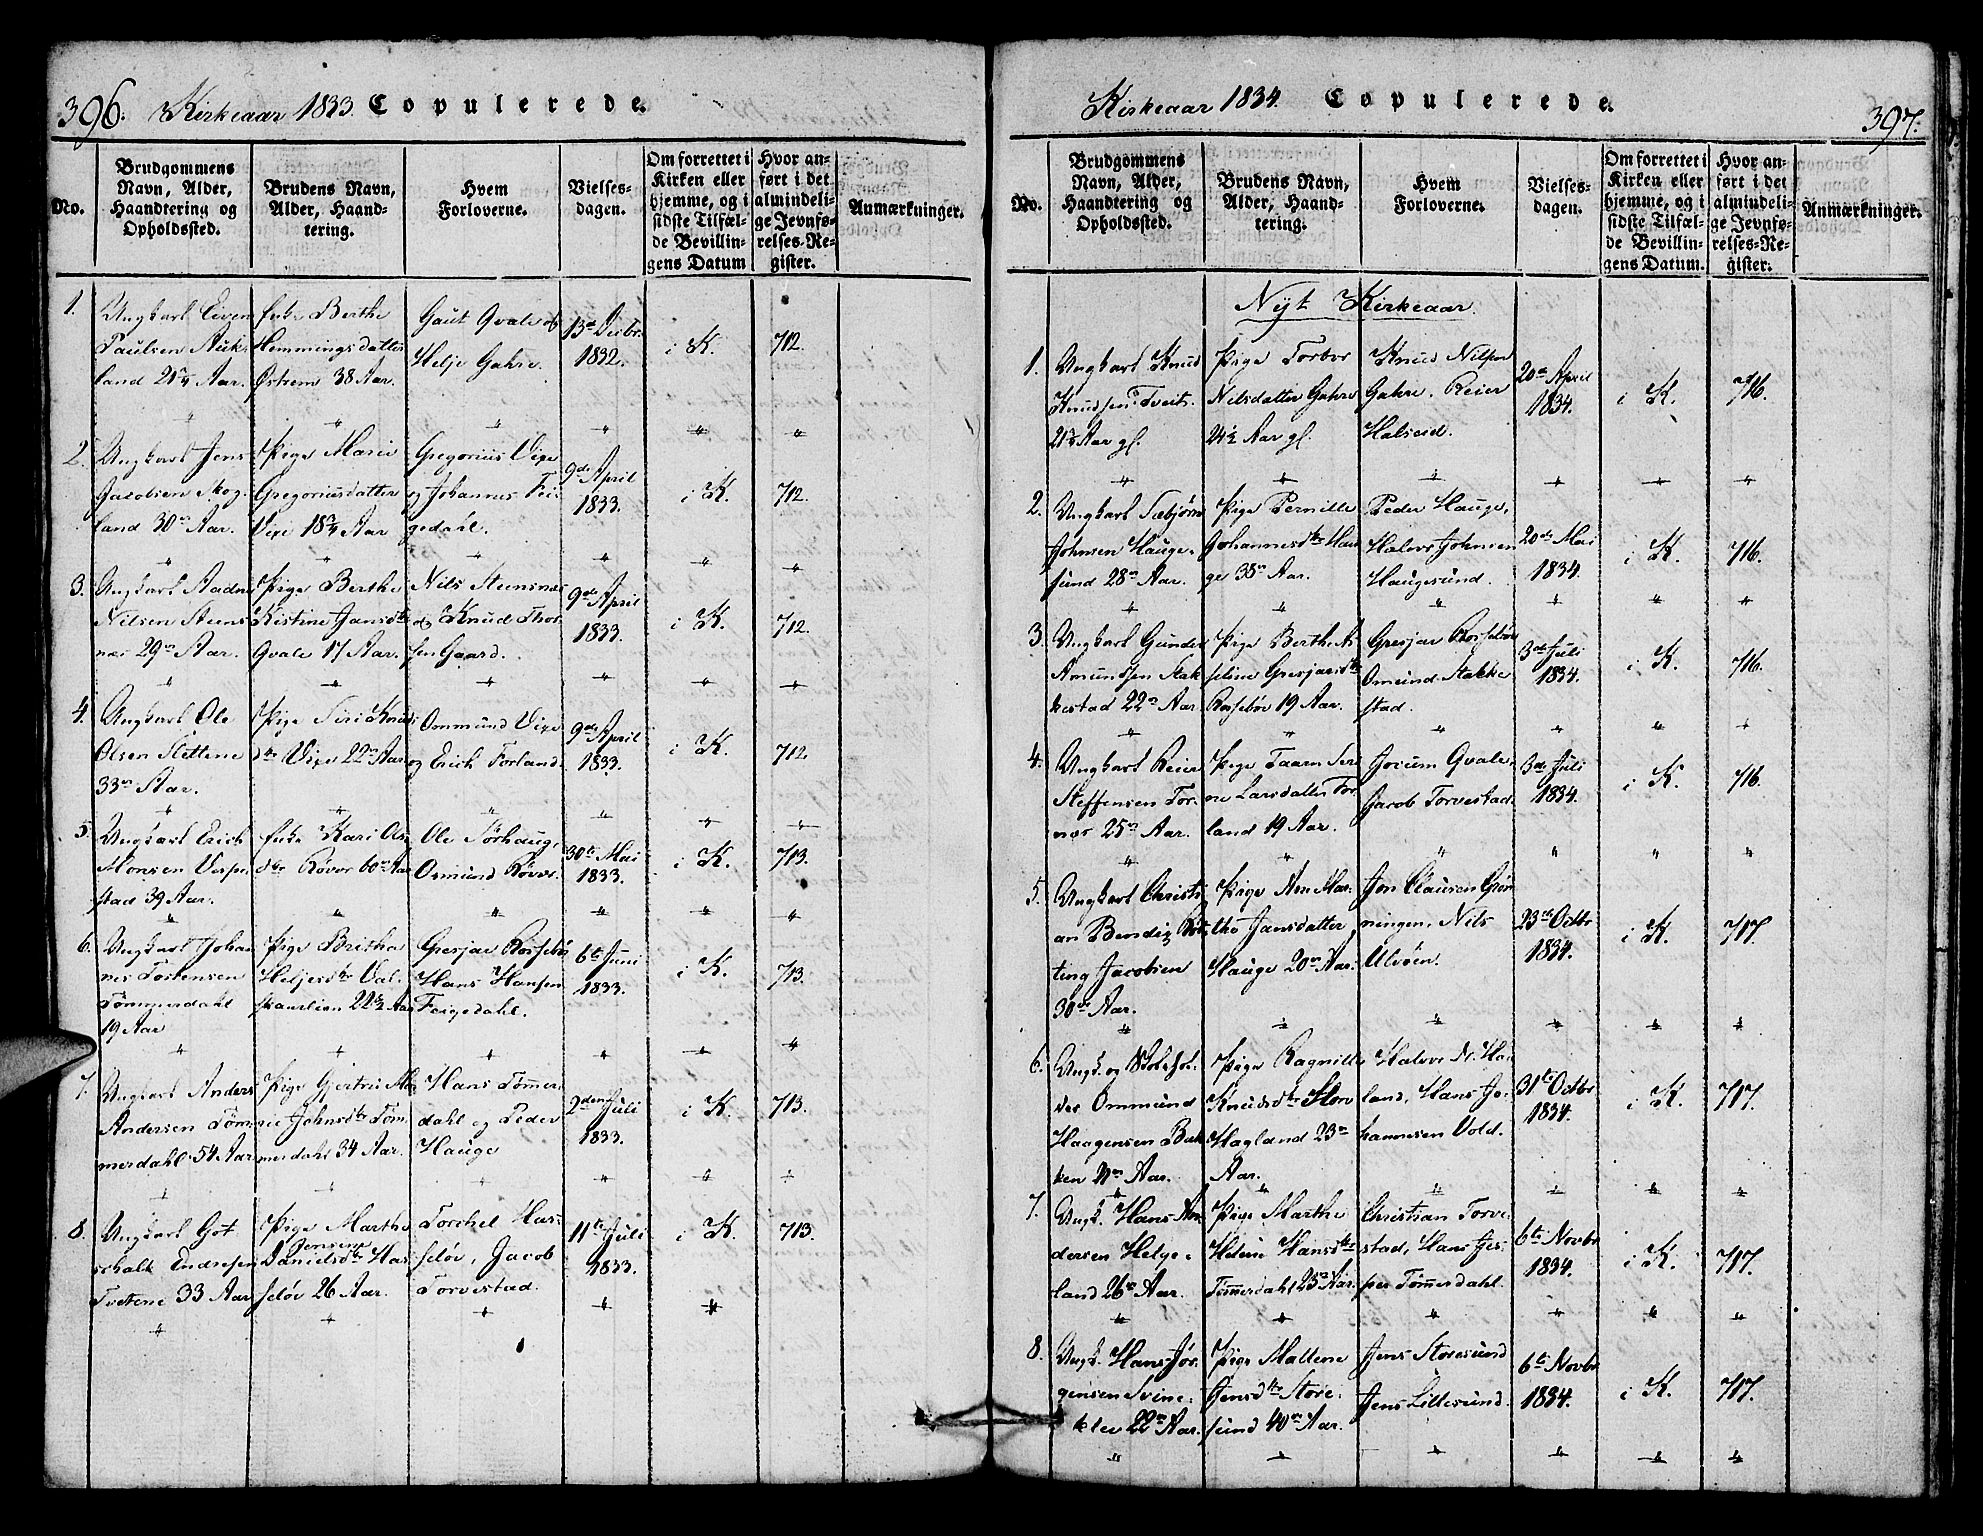 396. Kirkeaar 1833. Copulerede.
No.
Brudgommens Navn, Alder, Haandtering og Opholdssted.
Brudens Navn, Alder, Haandtering.
Hvem Forloverne.
Vielses-dagen.
Om forrettet i Kirken eller hjemme, og i sidste Tilfælde Bevillingens Datum
Hvor anført i det almindelige Jevnførelses-Register.
Anmærkninger.
1.
Ungkarl Eiven
Paulsen Auk-
land 21¾ Aar.
Enke Berthe
Hemmingsdatter
Østrem 38 Aar.
Gaut Qvale og
Helje Gahre.
13de Decbr.
1832.
i K.
712.
2.
Ungkarl Jens
Jacobsen Skog-
land 30 Aar.
Pige Marie
Gregoriusdatter
Vixe 18¾ Aar
Gregorius Vixe
og Johannes Fei-
gedahl.
9de April
1833.
i K.
712.
3.
Ungkarl Aadne
Nilsen Steens-
næs 29 Aar.
Pige Berthe
Kistine Jansdtr
Qvale 17 Aar.
Nils Steensnæs
og Knud Thor-
sen Gaard.
9de April
1833.
i K.
712.
4.
Ungkarl Ole
Olsen Slettene
33 Aar.
Pige Siri Knuds-
dtr Vixe 22 Aar
Ommund Vixe
og Erich Forland.
9de April
1833.
i K.
712.
5.
Ungkarl Erich
Monsen Vespe-
stad 39 Aar.
Enke Kari Ols-
dtr Røvær 60 Aar
Ole Sørhauge,
Osmund Røvær.
30te Mai
1833.
i K.
713.
6.
Ungkarl Johan-
nes Tostensen
Tømmerdahl
19 Aar
Pige Britha
Heljesdtr Val-
skaarlien 22½ Aar
Gresjar Rossebø
Hans Hansen
Feigedahl.
6te Juni
1833.
i K.
713.
7.
Ungkarl Anders
Andersen Tøm-
merdahl 54 Aar
Pige Gjertru Ma-
rie Johnsdtr Tøm-
merdahl 34 Aar.
Hans Tømer-
dahl og Peder
Hauge
2den Juli
1833.
i K.
713.
8.
Ungkarl Got-
schalk Endresen
Tvetene 33 Aar
Pige Marthe
Jensine
Danielsdtr Has-
seløv 26 Aar.
Torchel Has-
seløv, Jacob
Torvestad.
11te Juli
1833.
i K.
713.
Kirkeaar 1834. Copulerede. 397.
No.
Brudgommens Navn, Alder, Haandtering og Opholdssted.
Brudens Navn, Alder, Haandtering.
Hvem Forloverne.
Vielses-dagen.
Om forrettet i Kirken eller hjemme, og i sidste Tilfælde Bevillingens Datum.
Hvor anført i det almindelige Jevnførelses-Register.
Anmærkninger.
Nyt Kirkeaar.
1.
Ungkarl Knud
Knudsen Tveit.
21¾ Aar gl.
Pige Torbor
Nilsdatter Gahre
24½ Aar gl.
Knud Nilsen
Gahre, Reier
Halseid.
20de April
1834.
i K.
716.
2.
Ungkarl Sæbjørn
Johnsen Hauge-
sund 28 Aar.
Pige Pernille
Johannesdtr Hau-
ge 38 Aar.
Peder Hauge,
Halvor Johnsen
Haugesund.
20de Mai
1834.
i K.
716.
3.
Ungkarl Gunder
Amundsen Stak-
kestad 22 Aar.
Pige Berthe A-
seline Gresjarsdtr
Rossebø 19 Aar.
Gresjar Rossebø
Omund Stakke-
stad.
3de Juli
1834.
i K.
716.
4.
Ungkarl Reier
Steffensen Tor-
næs 25 Aar.
Pige Taarn Ser-
ine Larsdatter For-
land 19 Aar.
Jocum Qvale,
Jacob Torvestad.
3de Juli
1834.
i K.
716.
5.
Ungkarl Christi-
an Bendix
ting Jacobsen
30 Aar.
Pige Ane Mar-
the Jansdatter
Hauge 20 Aar.
Jon Clausen Grøn-
ningen, Nils
Ulvøen.
23de Octbr
1834.
i K.
717.
6.
Ungk. og
Ommund
Haagensen Bak-
ken Aar.
Pige Ragnille
Knudsdtr Stor
Hagland 23
Aar.
Halvor N. Ha-
land, Hans Jo-
hannesen Vold.
31te Octbr
1834.
i K.
717.
7.
Ungk. Hans An-
dersen Helge-
land 26 Aar.
Pige Marthe
Helene Hansdtr
Tømmerdahl 25 Aar.
Christian Torve-
stad, Hans Jes-
per Tømmerdahl.
6te Novbr
1834.
i K.
717.
8.
Ungk. Hans Jør-
gensen Svine-
klev 22 Aar.
Pige Mallene
Jensdtr Store-
sund 40 Aar.
Jens Storesund
Jens Lillesund.
6te Novbr
1834.
i K.
717.